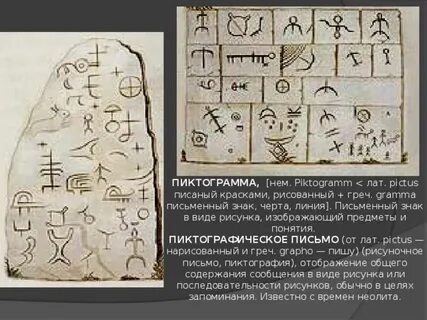 ПИКТОГРАММА, [нем. Piktogramm < лат. pictus
писаный красками, рисованный + греч. gramma
письменный знак, черта, линия]. Письменный знак
в виде рисунка, изображающий предметы и
понятия.
ПИКТОГРАФИЧЕСКОЕ ПИСЬМО (от лат. pictus —
нарисованный и греч. grapho — пишу) (рисуночное
письмо, пиктография), отображение общего
содержания сообщения в виде рисунка или
последовательности рисунков, обычно в целях
запоминания. Известно с времен неолита.